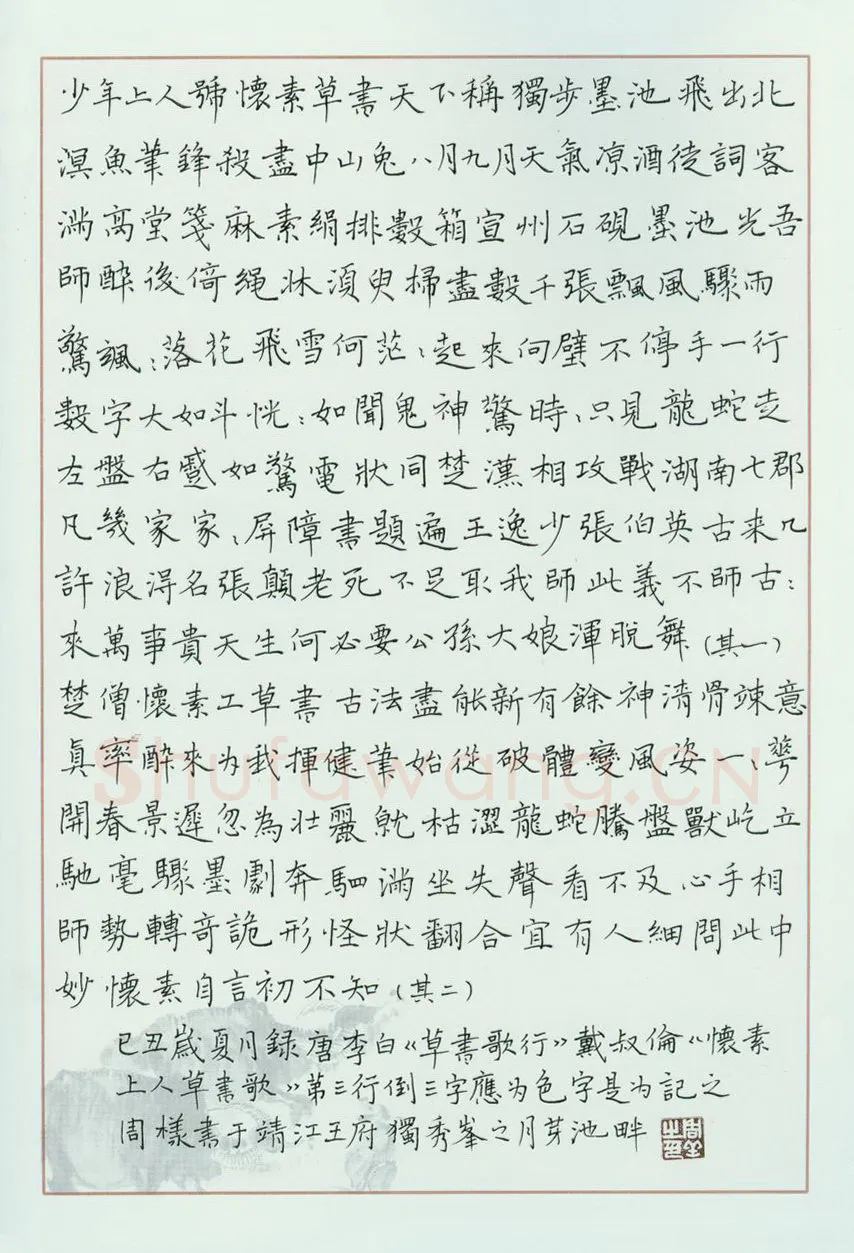 少年上人號懷素草書天下稱獨步墨池飛出北
溟魚筆鋒殺盡中山兔八月九月天氣凉酒徒詞客
滿高堂箋麻素絹排數箱宣州石硯墨池光吾
師醉後倚繩牀須臾掃盡數千張飄風驟雨
驚颯：落花飛雪何茫：起來向壁不停手一行
數字大如斗恍：如聞鬼神驚時、只見龍蛇走
左盤右蹙如驚電狀同楚漢相攻戰湖南七郡
凡幾家家、屏障書題遍王逸少張伯英古来几
許浪淂名張顛老死不足取我師此義不師古：
來萬事貴天生何必要公孫大娘渾脫舞（其一）
楚僧懷素工草書古法盡能新有餘神清骨竦意
真率醉來为我揮健筆始從破體變風姿一、蕚
開春景遲忽為壯麗就枯澀龍蛇騰盤獸屹立
馳毫驟墨劇奔駟滿坐失聲看不及心手相
師勢轉奇詭形怪狀翻合宜有人細問此中
妙懷素自言初不知（其二）
己丑歲夏月録唐李白《草書歌行》戴叔倫《懷素
上人草書歌》第三行倒三字應为色字是为記之
周樣書于靖江王府獨秀峯之月芽池畔
Shufawang.CN